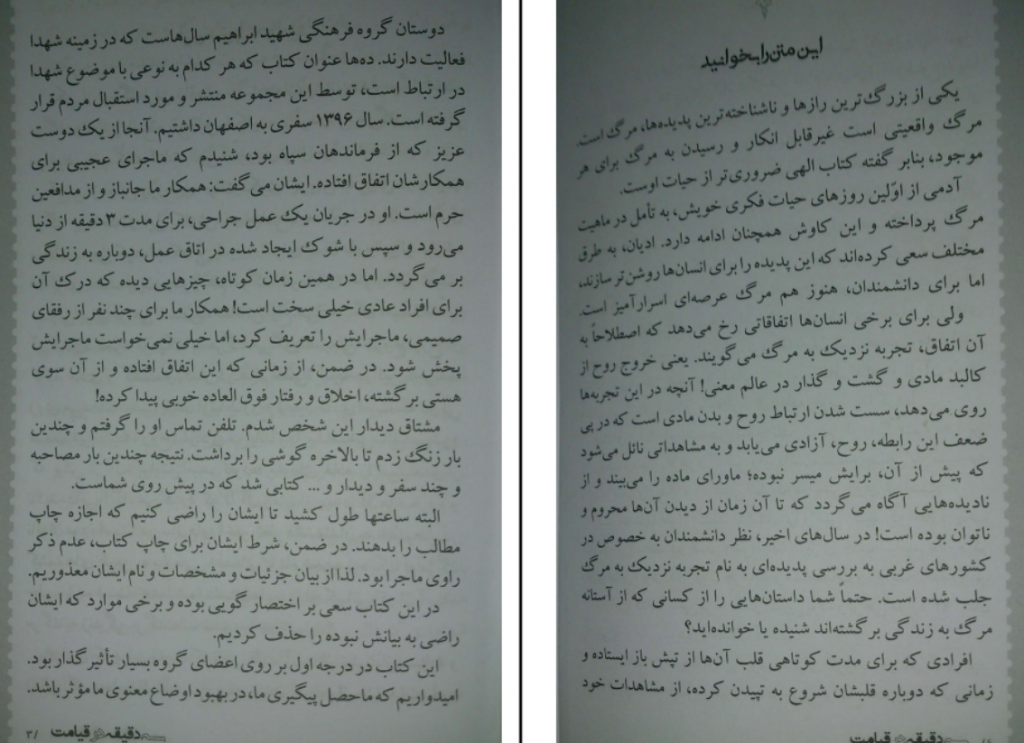 این متن را بخوانید
یکی از بزرگ‌ترین رازها و ناشناخته‌ترین پدیده‌ها، مرگ است.
مرگ واقعیتی است غیرقابل انکار و رسیدن به مرگ برای هر
موجود، بنابر گفته کتاب الهی ضروری‌تر از حیات اوست.
آدمی از اوّلین روزهای حیات فکری خویش، به تأمل در ماهیت
مرگ پرداخته و این کاوش همچنان ادامه دارد. ادیان، به طرق
مختلف سعی کرده‌اند که این پدیده را برای انسان‌ها روشن‌تر سازند،
اما برای دانشمندان، هنوز هم مرگ عرصه‌ای اسرارآمیز است.
ولی برای برخی انسان‌ها اتفاقاتی رخ می‌دهد که اصطلاحاً به
آن اتفاق، تجربه نزدیک به مرگ می‌گویند. یعنی خروج روح از
کالبد مادی و گشت و گذار در عالم معنی! آنچه در این تجربه‌ها
روی می‌دهد، سست شدن ارتباط روح و بدن مادی است که در پی
ضعف این رابطه، روح، آزادی می‌یابد و به مشاهداتی نائل می‌شود
که پیش از آن، برایش میسر نبوده؛ ماورای ماده را می‌بیند و از
نادیده‌هایی آگاه می‌گردد که تا آن زمان از دیدن آن‌ها محروم و
ناتوان بوده است! در سال‌های اخیر، نظر دانشمندان به خصوص در
کشورهای غربی به بررسی پدیده‌ای به نام تجربه نزدیک به مرگ
جلب شده است. حتماً شما داستان‌هایی را از کسانی که از آستانه
مرگ به زندگی برگشته‌اند شنیده یا خوانده‌اید؟
افرادی که برای مدت کوتاهی قلب آن‌ها از تپش باز ایستاده و
زمانی که دوباره قلبشان شروع به تپیدن کرده، از مشاهدات خود
سه دقیقه در قیامت
دوستان گروه فرهنگی شهید ابراهیم سال‌هاست که در زمینه شهدا
فعالیت دارند. ده‌ها عنوان کتاب که هر کدام به نوعی با موضوع شهدا
در ارتباط است، توسط این مجموعه منتشر و مورد استقبال مردم قرار
گرفته است. سال ۱۳۹۶ سفری به اصفهان داشتیم. آنجا از یک دوست
عزیز که از فرماندهان سپاه بود، شنیدم که ماجرای عجیبی برای
همکارشان اتفاق افتاده. ایشان می‌گفت: همکار ما جانباز و از مدافعین
حرم است. او در جریان یک عمل جراحی، برای مدت ۳ دقیقه از دنیا
می‌رود و سپس با شوک ایجاد شده در اتاق عمل، دوباره به زندگی
بر می‌گردد. اما در همین زمان کوتاه، چیزهایی دیده که درک آن
برای افراد عادی خیلی سخت است! همکار ما برای چند نفر از رفقای
صمیمی، ماجرایش را تعریف کرد، اما خیلی نمی‌خواست ماجرایش
پخش شود. در ضمن، از زمانی که این اتفاق افتاده و از آن سوی
هستی برگشته، اخلاق و رفتار فوق العاده خوبی پیدا کرده!
مشتاق دیدار این شخص شدم. تلفن تماس او را گرفتم و چندین
بار زنگ زدم تا بالاخره گوشی را برداشت. نتیجه چندین بار مصاحبه
و چند سفر و دیدار و ... کتابی شد که در پیش روی شماست.
البته ساعتها طول کشید تا ایشان را راضی کنیم که اجازه چاپ
مطالب را بدهند. در ضمن، شرط ایشان برای چاپ کتاب، عدم ذکر
راوی ماجرا بود. لذا از بیان جزئیات و مشخصات و نام ایشان معذوریم.
در این کتاب سعی بر اختصار گویی بوده و برخی موارد که ایشان
راضی به بیانش نبوده را حذف کردیم.
این کتاب در درجه اول بر روی اعضای گروه بسیار تأثیرگذار بود.
امیدواریم که ماحصل پیگیری ما، در بهبود اوضاع معنوی ما مؤثر باشد.
سه دقیقه در قیامت /۳